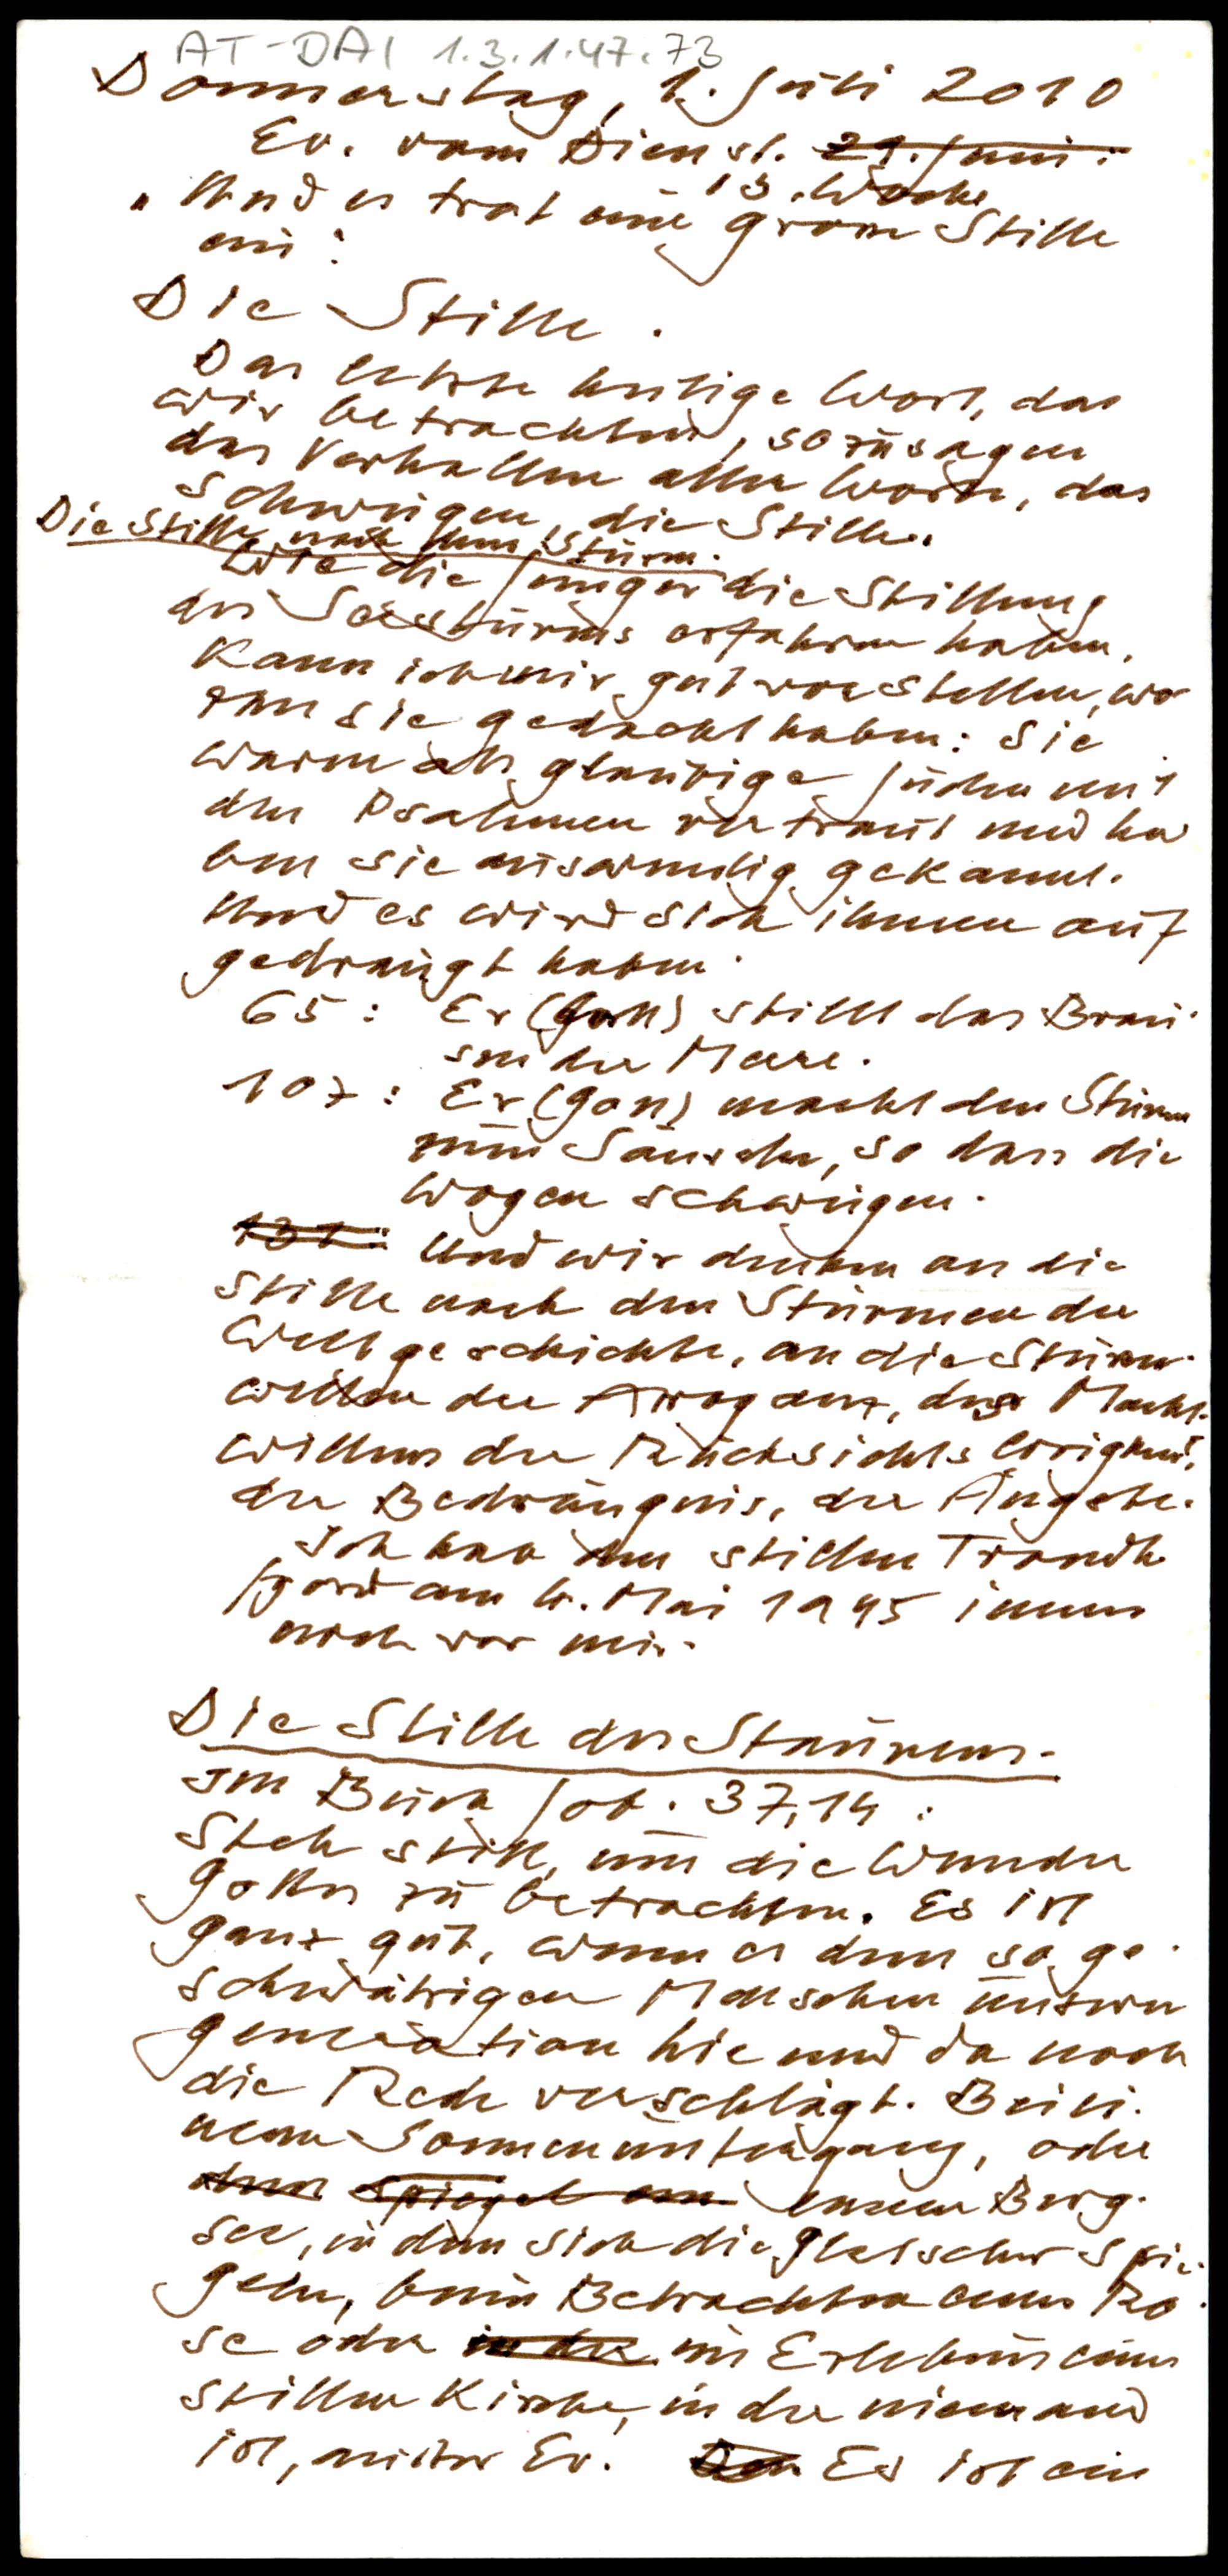 AT-DAI 1.3.1.47.73
Donnerstag, 1. Juli 2010
Ev. vom Dienst. 29. Juni.
13. Woche
"Und es trat eine grosse Stille
ein."
Die Stille.
Das letzte heilige Wort, das
wir betrachten, sozusagen
das Verhallen aller Worte, das
Schweigen, die Stille.
Die Stille nach dem Sturm.
Wie die Jünger die Stillung
des Seesturms erfahren haben,
kann ich mir gut vorstellen, wo
ran sie gedacht haben: Sie
waren als gläubige Juden mit
den Psalmen vertraut und ha
ben sie auswendig gekannt.
Und es wird sich ihnen auf
gedrängt haben.
65: Er (Gott) stillt das Brau
sen der Meere.
107: Er (Gott) macht den Sturm
zum Säuseln, so dass die
Wogen schweigen.
131: Und wir denken an die
Stille nach den Stürmen der
Weltgeschichte, an die Sturm
wellen der Arroganz, des Macht
willens der Rücksichtslosigkeit,
der Bedrängnis, der Ängste.
Ich hab den stillen Trondh
fjord am 4. Mai 1945 immer
noch vor mir.
Die Stille des Staunens.
Im Buch Job. 37,14:
Steh still, um die Wunder
Gottes zu betrachten. Es ist
ganz gut, wenn es dem so ge
schwätzigen Menschen unserer
Generation hie und da noch
die Rede verschlägt. Bei ei
nem Sonnenuntergang, oder
dem Spiegel am einem Berg
see, in dem sich die Gletscher spie
geln, beim Betrachten einer Ro
se oder in der im Erlebnis einer
stillen Kirche, in der niemand
ist, ausser Er. Es ist ein